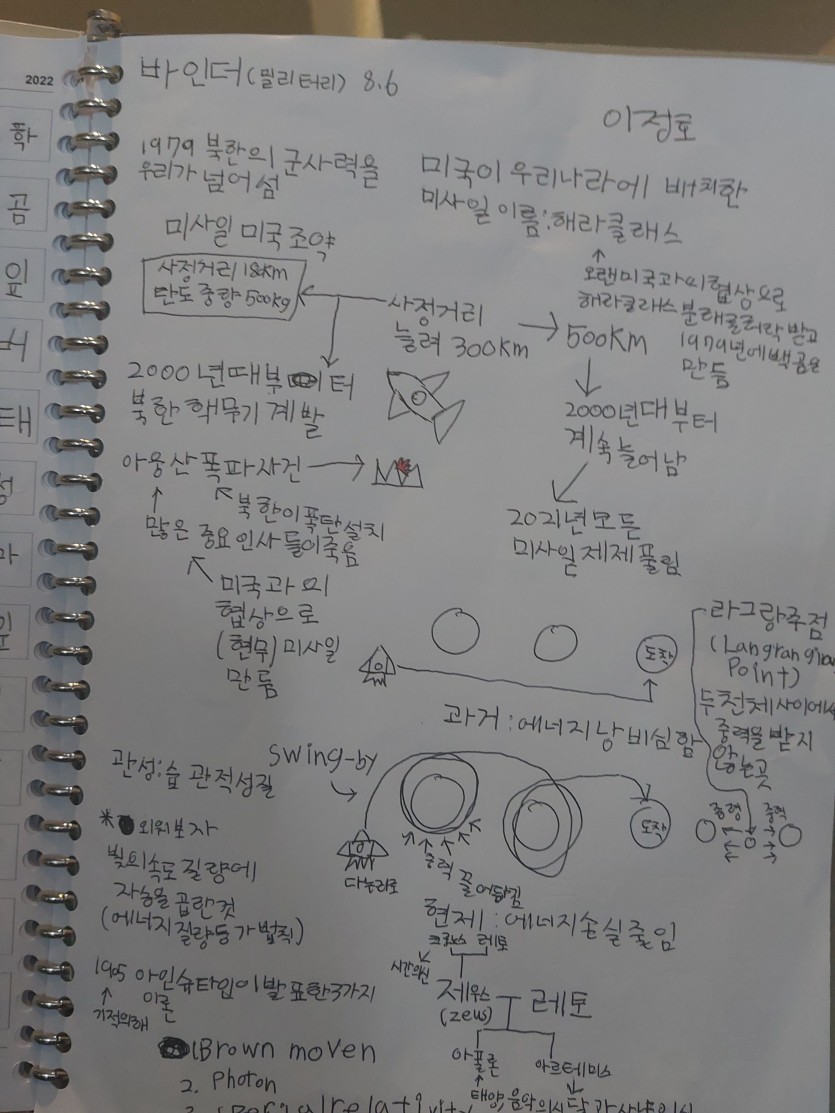 2022
확
곰
잎
태
성
바인더(밀리터리) 8.6
이정호
1979 북한의 군사력을
우리가 넘어섬
미국이 우리나라에 배치한
미사일 이름:해라클래스
미사일 미국조약
사정거리 18km
탄도 중량 500kg
사정거리
늘려 300km
500km
오랜미국과의협상으로
해라클래스 분래콜러락 받고
1979년에 백곰을
만듬
2000년때부터
북한 핵무기 계발
2000년대부터
계속늘어남
2021년모든
미사일제제풀림
아웅산 폭파사건
북한이폭탄설치
많은 중요인사들이죽음
미국과의
협상으로
(현무)미사일
만듬
도착
과거:에너지낭비심함
라그랑주점
(Langrangian
Point)
두천체사이에서
중력을받지
않는곳
중력
중력
관성:습관적성질
Swing-by
도착
다누리호
중력 끌어당김
현제:에너지손실줄임
* 외워보자
빛의속도 질량에
자승을 곱란것
(에너지질량등가법칙)
1905 아인슈타입이발표한3가지
이론
기적의해
크로노스 레토
시간의신
제우스
(zeus)
레토
아폴론
아르테미스
태양,음악의신
달과사냥의신
1Brown moven
2. Photon
3. Special relativity